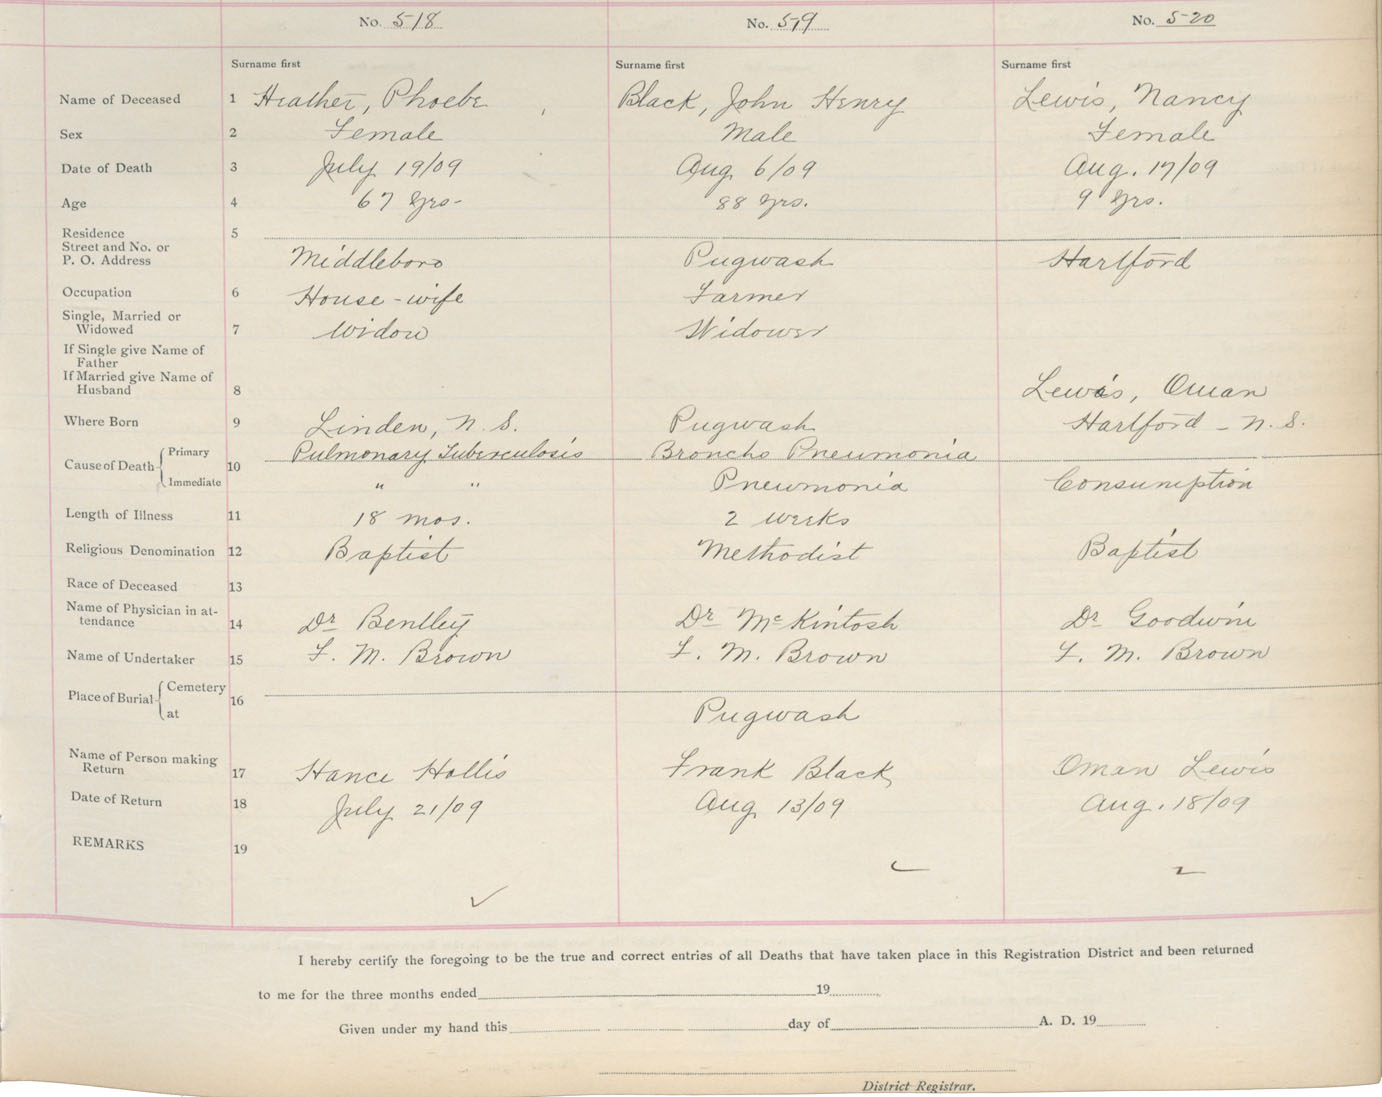 No. 518 No. 519 No. 520
Surname first Surname first Surname first
Name of Deceased 1 Heather, Phoebe Black, John Henry Lewis, Nancy
Sex 2 Female Male Female
Date of Death 3 July 19/09 Aug 6/09 Aug. 17/09
Age 4 67 Yrs- 88 Yrs. 9 Yrs.
Residence 5
Street and No. or
P. O. Address Middleboro Pugwash Hartford
Occupation 6 House-wife Farmer
Single, Married or
Widowed 7 Widow Widower
If Single give Name of
Father
If Married give Name of
Husband 8 Lewis, Oman
Where Born 9 Linden, N.S. Pugwash Hartford - N.S.
Cause of Death Primary 10 Pulmonary Tuberculosis Broncho Pneumonia
Immediate " " Pneumonia Consumption
Length of Illness 11 18 mos. 2 weeks
Religious Denomination 12 Baptist Methodist Baptist
Race of Deceased 13
Name of Physician in at-
tendance 14 Dr Bentley Dr McKintosh Dr Goodwin
Name of Undertaker 15 F. M. Brown F. M. Brown F. M. Brown
Place of Burial Cemetery 16
at Pugwash
Name of Person making
Return 17 Hance Hollis Frank Black Oman Lewis
Date of Return 18 July 21/09 Aug 13/09 Aug. 18/09
REMARKS 19
I hereby certify the foregoing to be the true and correct entries of all Deaths that have taken place in this Registration District and been returned
to me for the three months ended 19
Given under my hand this day of A. D. 19
District Registrar.